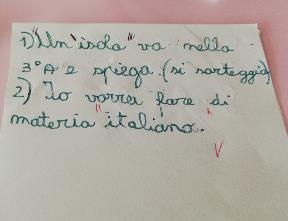 1) Un "isola" va nella
3°A e spiega. (si sorteggia)
2) Io vorrei fare di
materia "italiano".
V